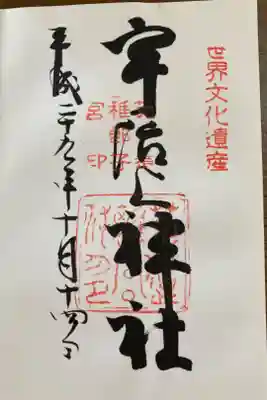 世界文化遺産
宇治上神社
平成二十九年十月十四日